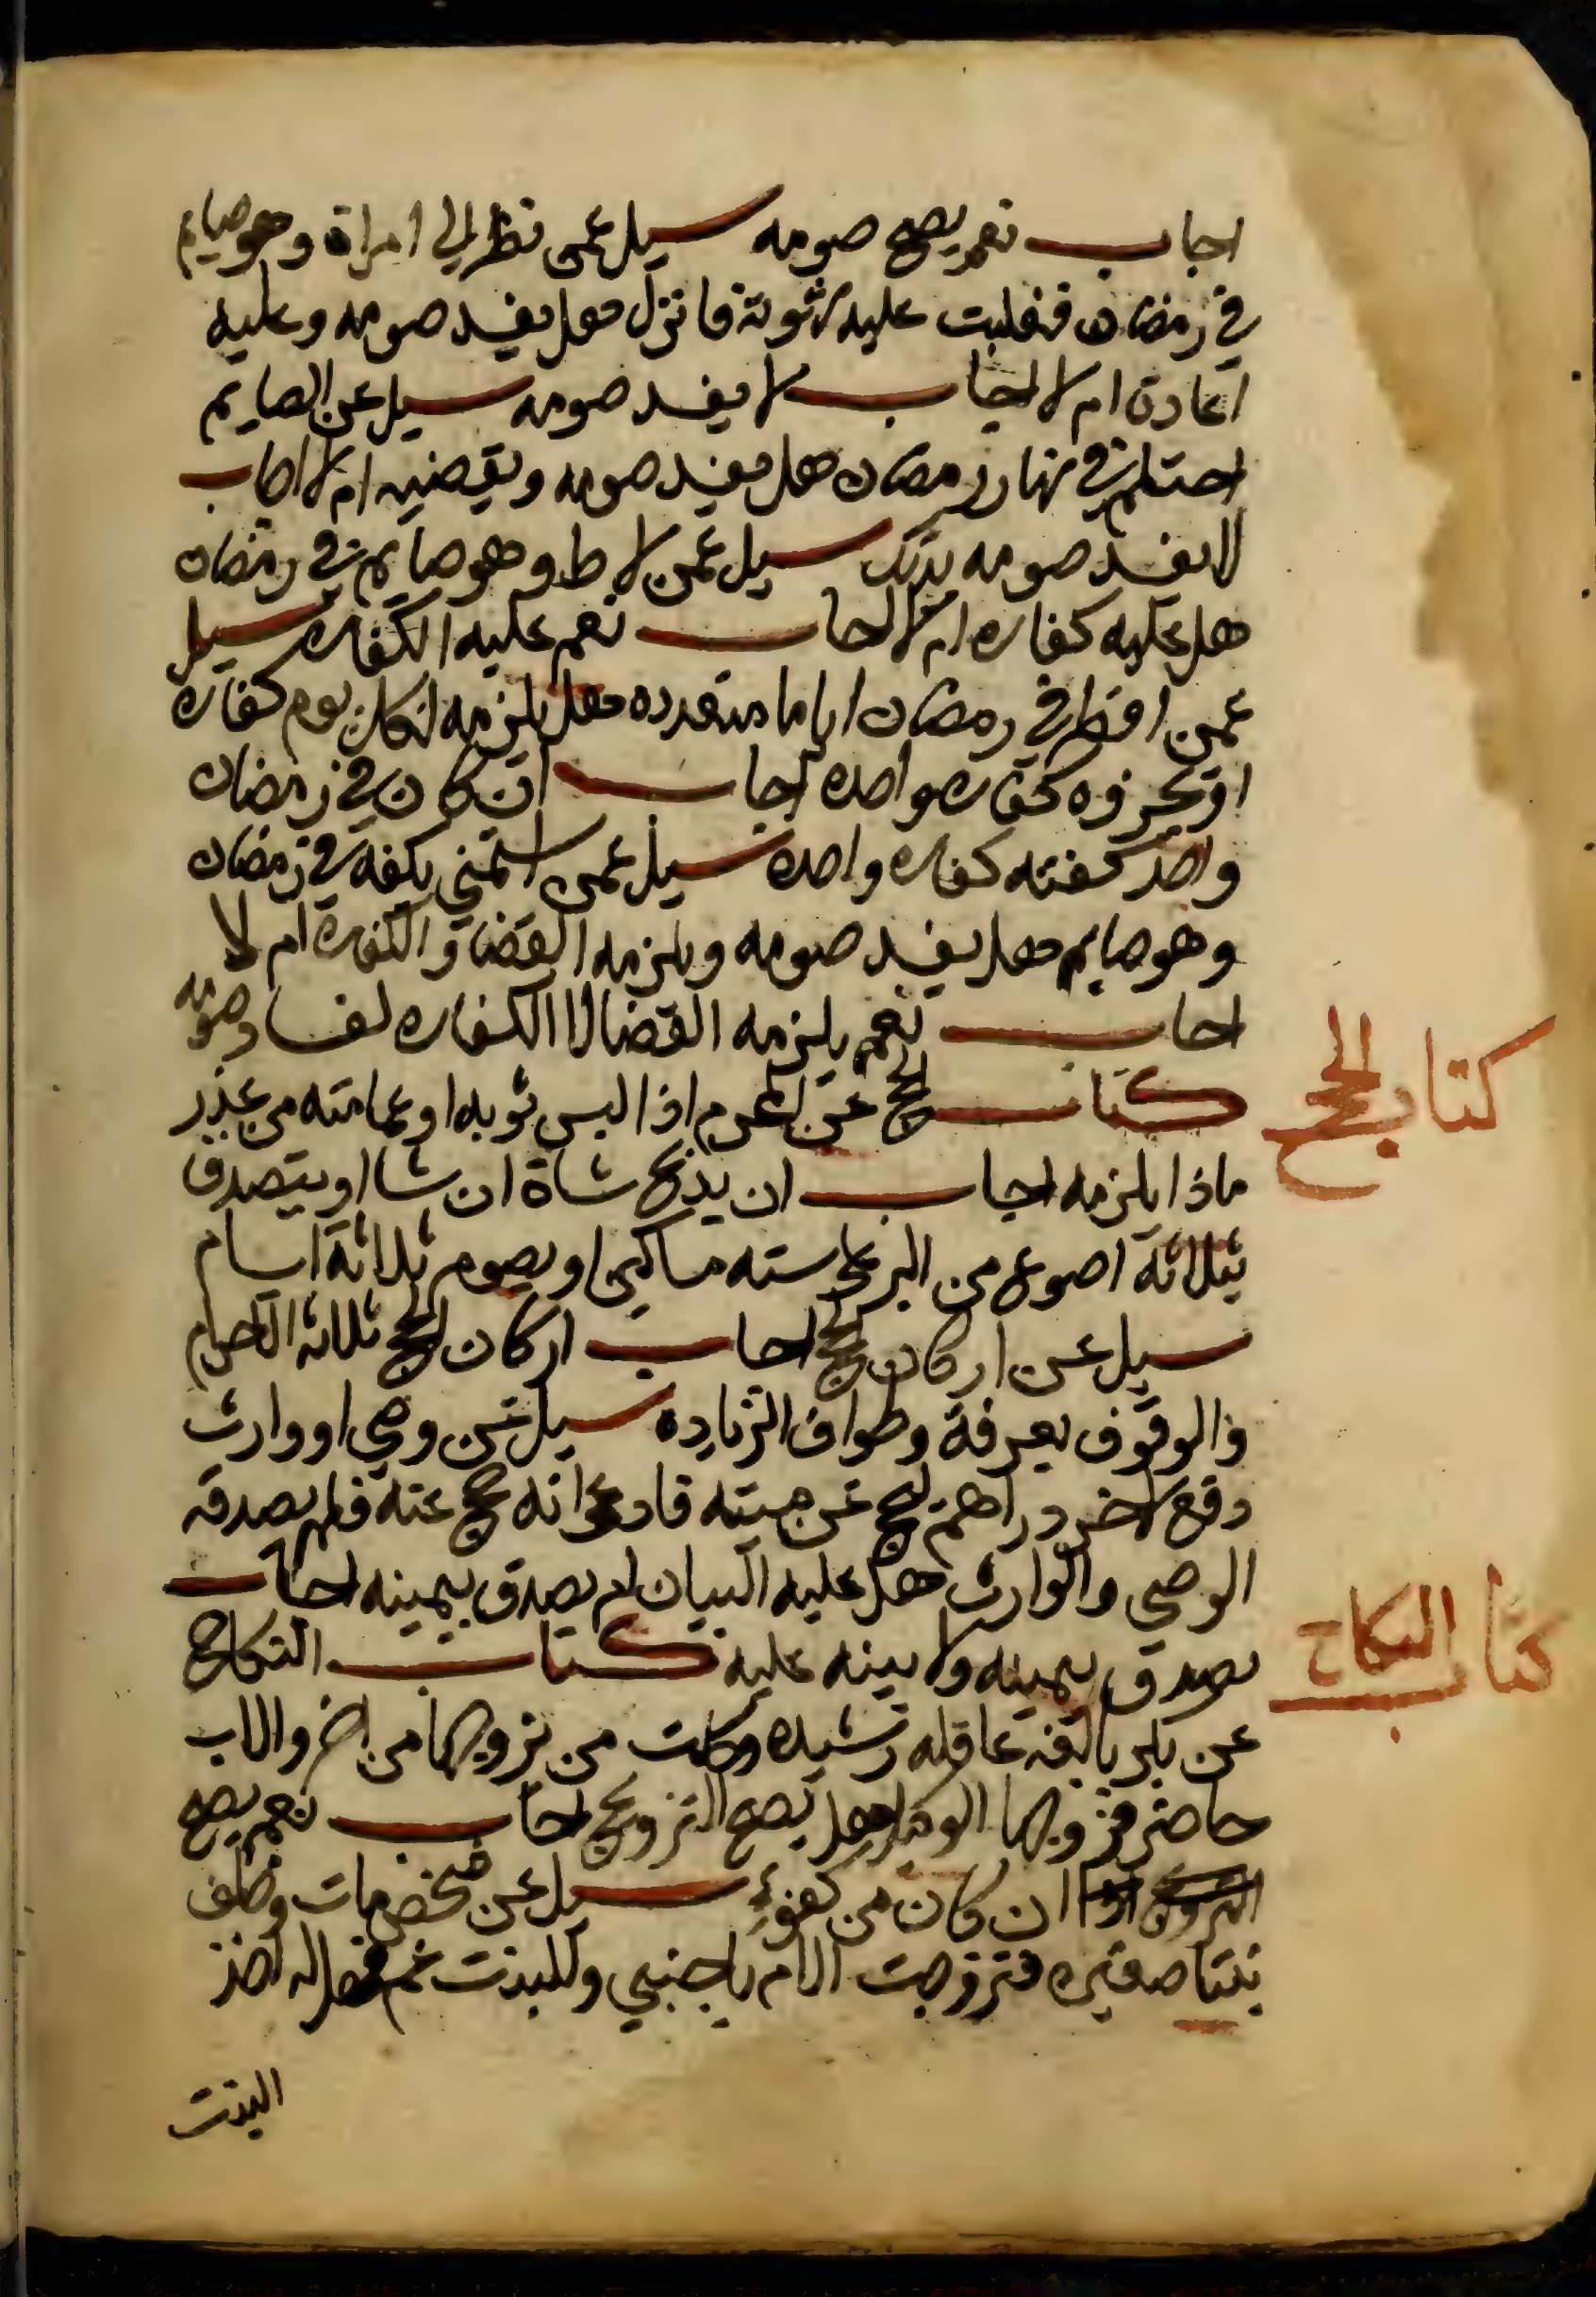 اجاب نعم يصح صومه سيل عمن نظر الي امراة وهو صايم
في رمضان فغلبت عليه شهوته فانزل هل يفسد صومه وعليه
اعادة ام لا اجاب لا يفسد صومه سيل عن الصايم
احتلم في نهار رمضان هل يفسد صومه ويقضيه ام لا اجاب
لا يفسد صومه بذلك سيل عمن لاط وهو صايم في رمضان
هل عليه كفاره ام لا اجاب نعم عليه الكفاره سيل
عمن افطر في رمضان اياما متعدده هل يلزمه لكل يوم كفاره
او تجزوه كفاره واحده اجاب ان كان في رمضان
واحد كفته كفاره واحده سيل عمن استمني بكفه في رمضان
وهو صايم هل يفسد صومه ويلزمه القضا والكفاره ام لا
اجاب نعم يلزمه القضا لا الكفاره لفساد صومه
كتاب الحج عن المحرم اذا لبس ثوبه او عمامته من عذر
ماذا يلزمه اجاب ان يذبح شاة ان شا او يتصدق
بثلاثة اصوع من البر علي سته مساكين او يصوم ثلاثة ايام
سيل عن اركان الحج اجاب اركان الحج ثلاثه الاحرام
والوقوف بعرفة وطواف الزياده سيل عن وصي او وارث
دفع لاخر دراهم ليحج عن ميته فادعي انه حج عنه فلم يصدقه
الوصي والوارث هل عليه البيان ام يصدق بيمينه اجاب
يصدق بيمينه ولا بينه عليه كتاب النكاح
عن بكر بالغه عاقله رشيده وكلت من يزوجها من اخر والاب
حاضر فزوجها الوكيل هل يصح التزويج اجاب نعم يصح
التزويج ان كان من كفوء سيل عن شخص مات وخلف
بنتا صغيره فتزوجت الام باجنبي وللبنت عم فهل له اخذ
البنت
كتاب الحج
كتاب النكاح